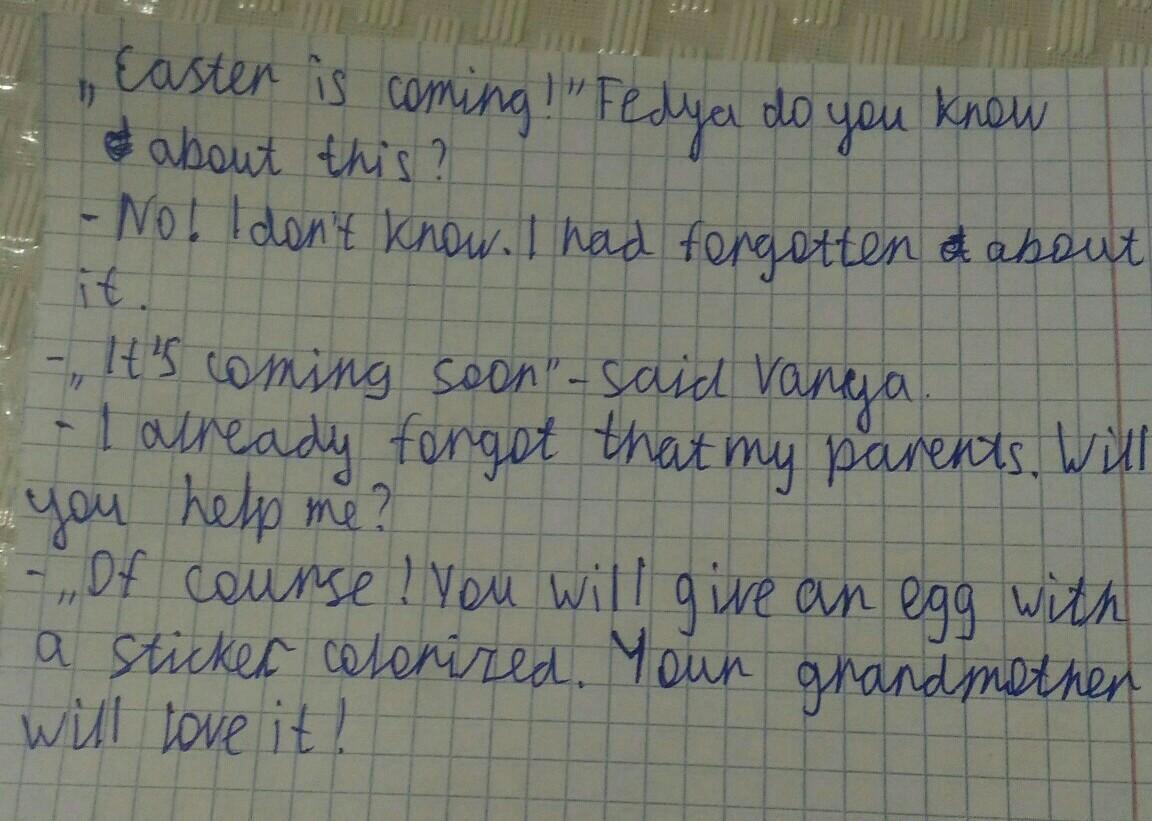 „Easter is coming!" Fedya do you know
about this?
- No! I don't know. I had forgotten about
it.
- „It's coming soon" - said Vanya.
- I already forgot that my parents. Will
you help me?
- „Of course! You will give an egg with
a sticker colorized. Your grandmother
will love it!